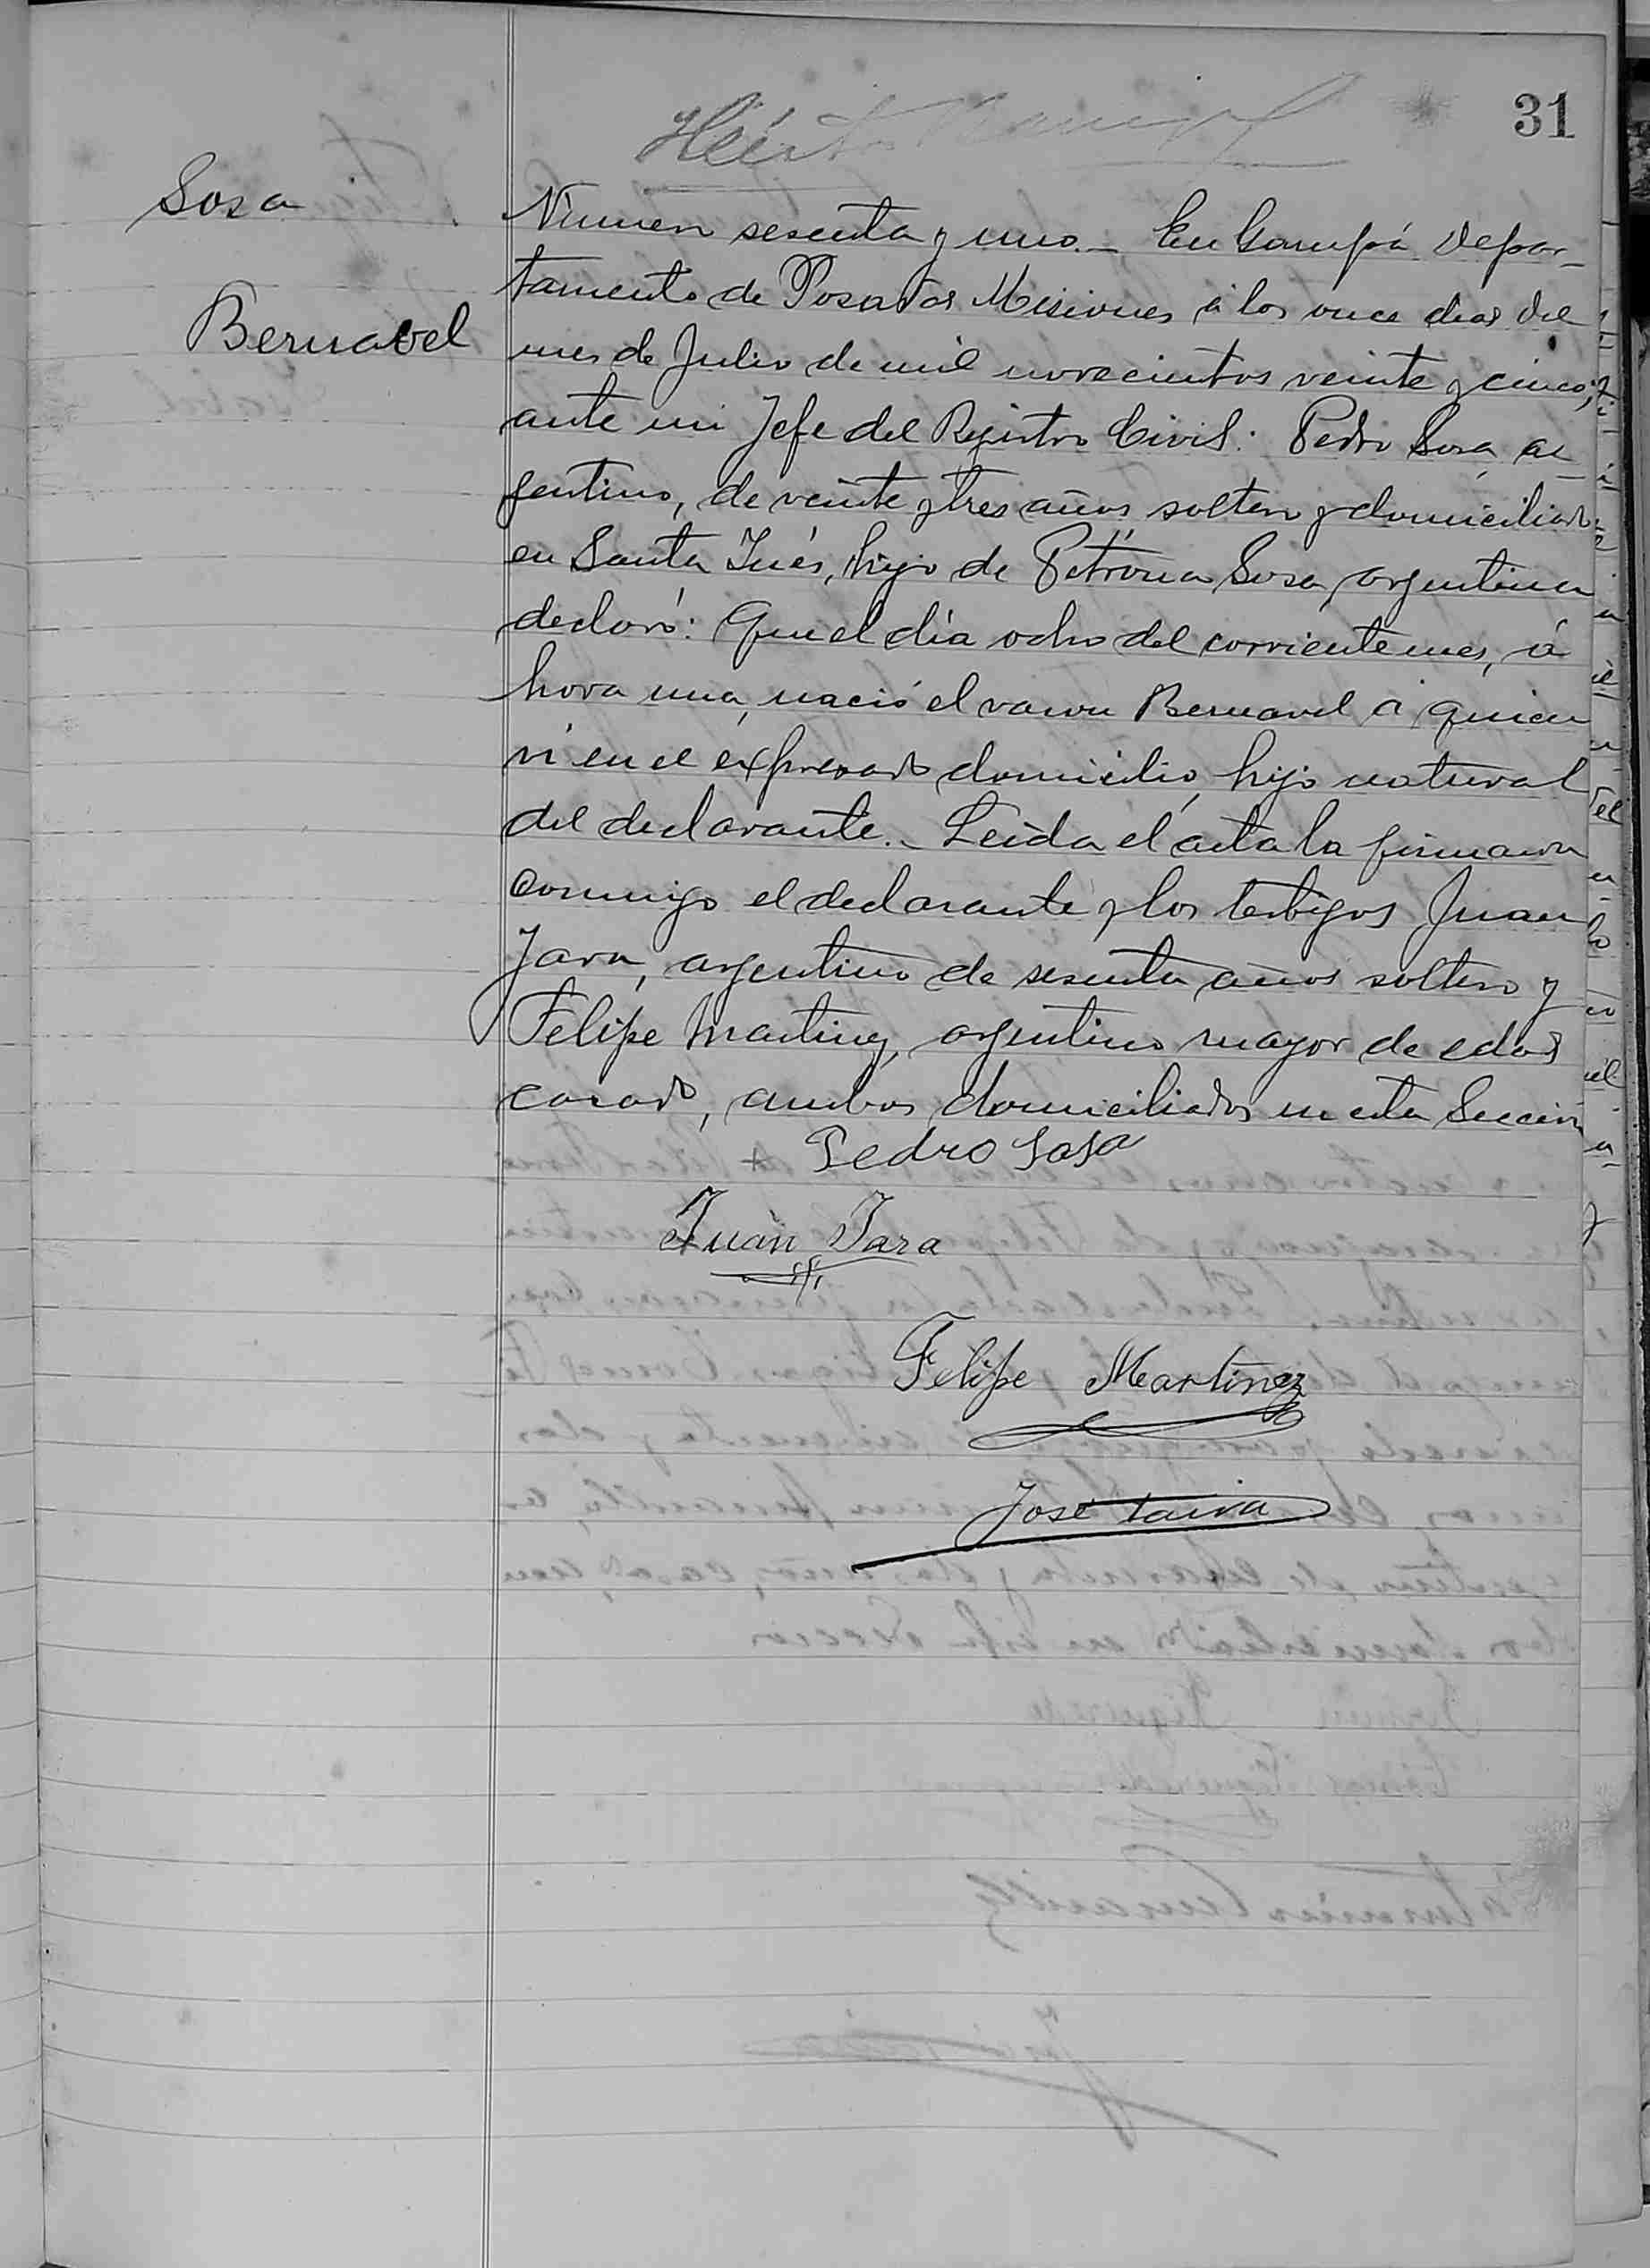 31
Sosa
Bernavel
Número sesenta y uno.- En Garupá Depar-
tamento de Posadas Misiones á los once dias del
mes de Julio de mil novecientos veinte y cinco;
ante mi Jefe del Registro Civil: Pedro Sosa, ar-
gentino, de veinte y tres años, soltero y domiciliado
en Santa Inés, hijo de Petrona Sosa, argentina
declaró: Que el día ocho del corriente mes, á
hora una, nació el varon Bernavel á quien
ví en el expresado domicilio, hijo natural
del declarante.- Leida el acta la firmaron
conmigo el declarante y los testigos Juan
Jara, argentino de sesenta años soltero y
Felipe Martinez, argentino mayor de edad
casado, ambos domiciliados en esta Sección
Pedro Sosa
Juan Jara
Felipe Martinez
José